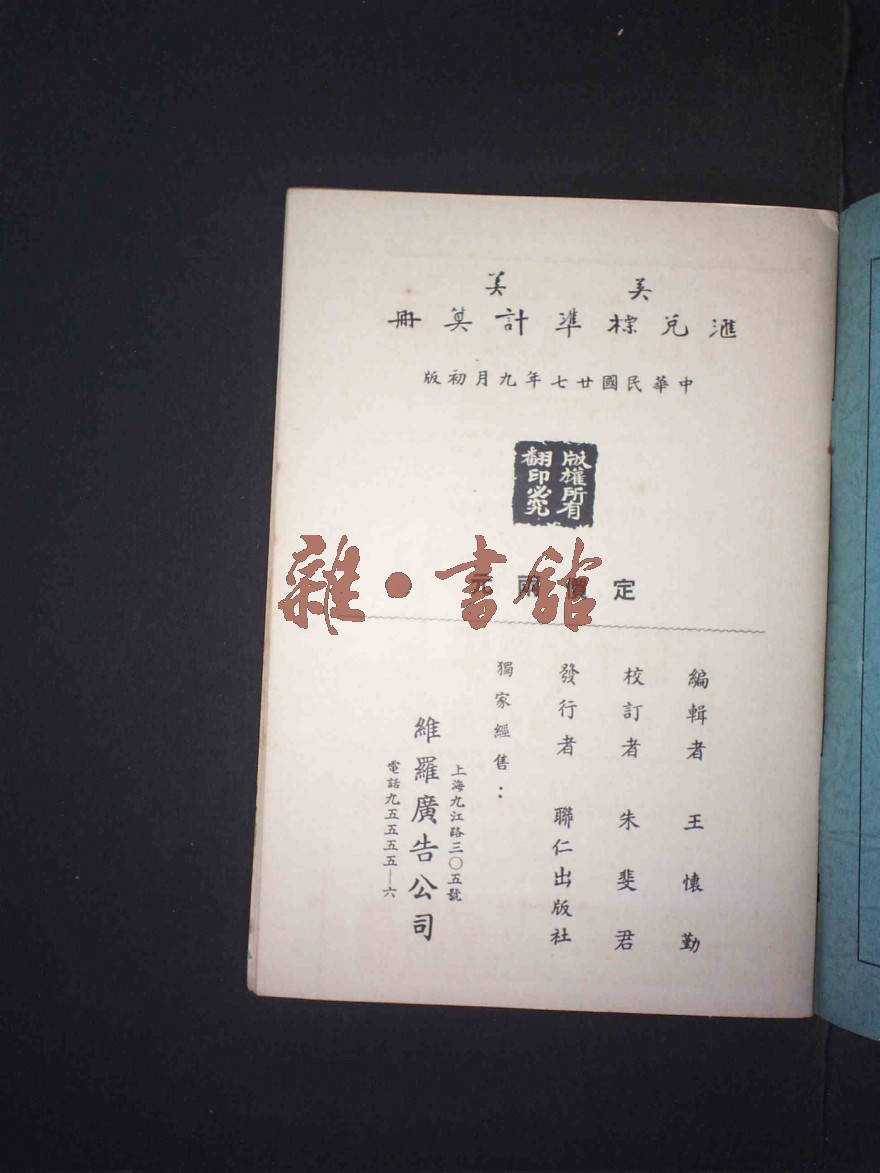 美 美
滙兌標準計算冊
中華民國廿七年九月初版
版權所有
翻印必究
定價兩元
編輯者 王懷勤
校訂者 朱斐君
發行者 聯仁出版社
獨家經售：
上海九江路三〇五號
維羅廣告公司
電話九五五五五—六
雜・書館